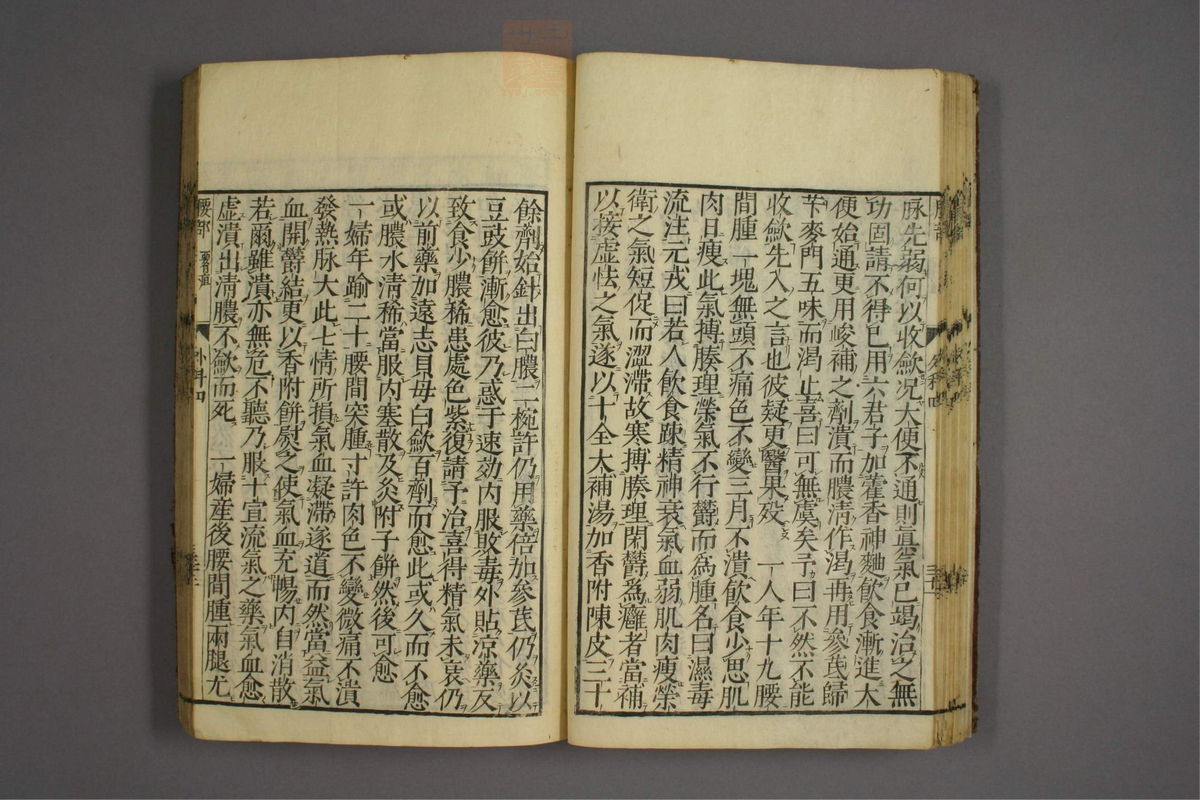 脉先弱何以收歛况大便不通則眞氣已竭治之無
功固請不得已用六君子加藿香神麯飲食漸進大
便始通更用峻補之劑潰而膿淸作渴再用參芪歸
芐麥門五味而渴止喜曰可無虞矣予曰不然不能
收歛先入之言也彼疑更醫果歿 一人年十九腰
間腫一塊無頭不痛色不變三月不潰飲食少思肌
肉日瘦此氣搏腠理榮氣不行欝而爲腫名曰濕毒
流注元戎曰若人飲食踈精神衰氣血弱肌肉瘦榮
衛之氣短促而澀滯故寒搏腠理閉欝爲癰者當補
以接虚怯之氣遂以十全大補湯加香附陳皮三十
餘劑始針出白膿二椀許仍用藥倍加參芪仍灸以
豆豉餅漸愈彼乃惑于速効内服敗毒外貼凉藥反
致食少膿稀患處色紫復請予治喜得精氣未衰仍
以前藥加遠志貝母白歛百劑而愈此或久而不愈
或膿水清稀當服内塞散及灸附子餅然後可愈
一婦年踰二十腰間突腫寸許肉色不變微痛不潰
發熱脉大此七情所損氣血凝滯遂道而然當益氣
血開欝結更以香附餅熨之使氣血充暢内自消散
若爾雖潰亦無危不聽乃服十宣流氣之藥氣血愈
虚潰出淸膿不歛而死 一婦産後腰間腫兩腿尤
腰部
外科四